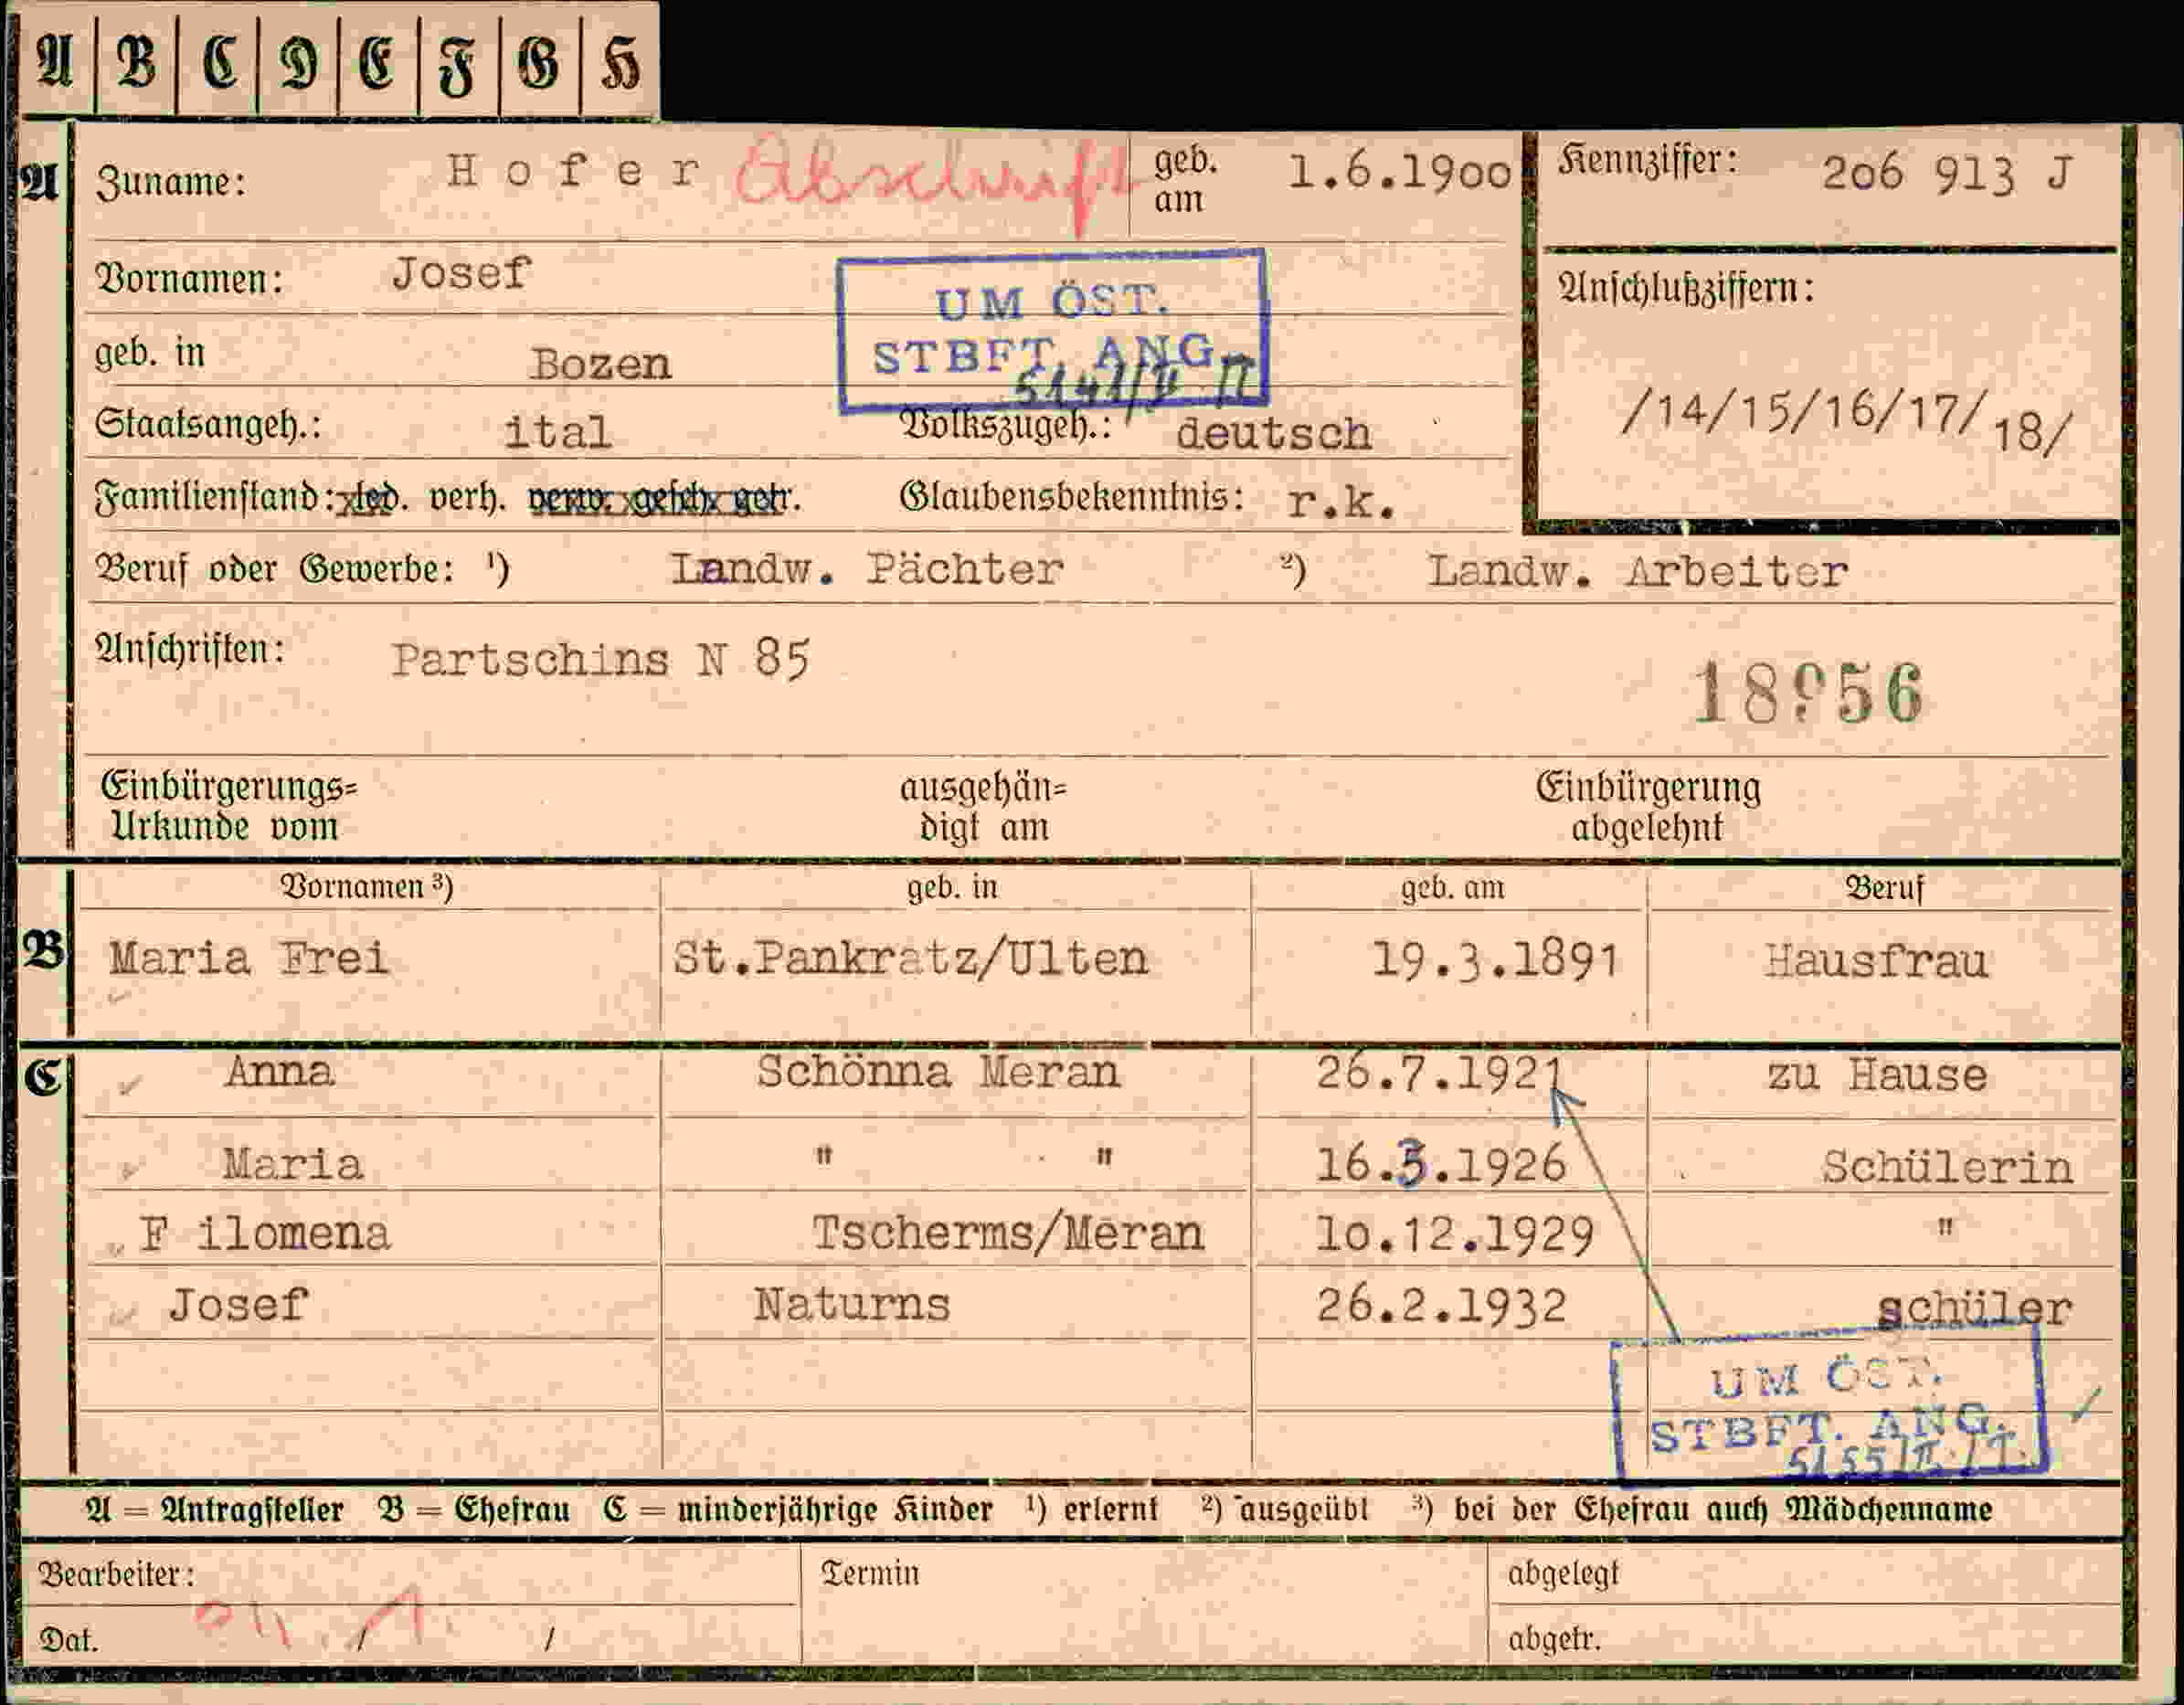 A B C D E F G H
A Zuname: Hofer Abschrift geb. am 1.6.1900 Kennziffer: 206 913 J
Vornamen: Josef
UM ÖST.
STBFT. ANG.
Anschlußziffern:
/14/15/16/17/18/
geb. in Bozen
Staatsangeh.: ital Volkszugeh.: deutsch
Familienstand: led. verh. verw. gesch. getr. Glaubensbekenntnis: r.k.
Beruf oder Gewerbe: ¹) Landw. Pächter ²) Landw. Arbeiter
Anschriften: Partschins N 85
Einbürgerungs= ausgehän= Einbürgerung
Urkunde vom digt am abgelehnt
Vornamen ³) geb. in geb. am Beruf
B Maria Frei St.Pankratz/Ulten 19.3.1891 Hausfrau
C Anna Schönna Meran 26.7.1921 zu Hause
Maria " " 16.3.1926 Schülerin
F ilomena Tscherms/Meran 10.12.1929 "
Josef Naturns 26.2.1932 schüler
UM ÖST.
STBFT. ANG.
A = Antragsteller B = Ehefrau C = minderjährige Kinder ¹) erlernt ²) ausgeübt ³) bei der Ehefrau auch Mädchenname
Bearbeiter: Termin abgelegt
Dat. / / abgetr.